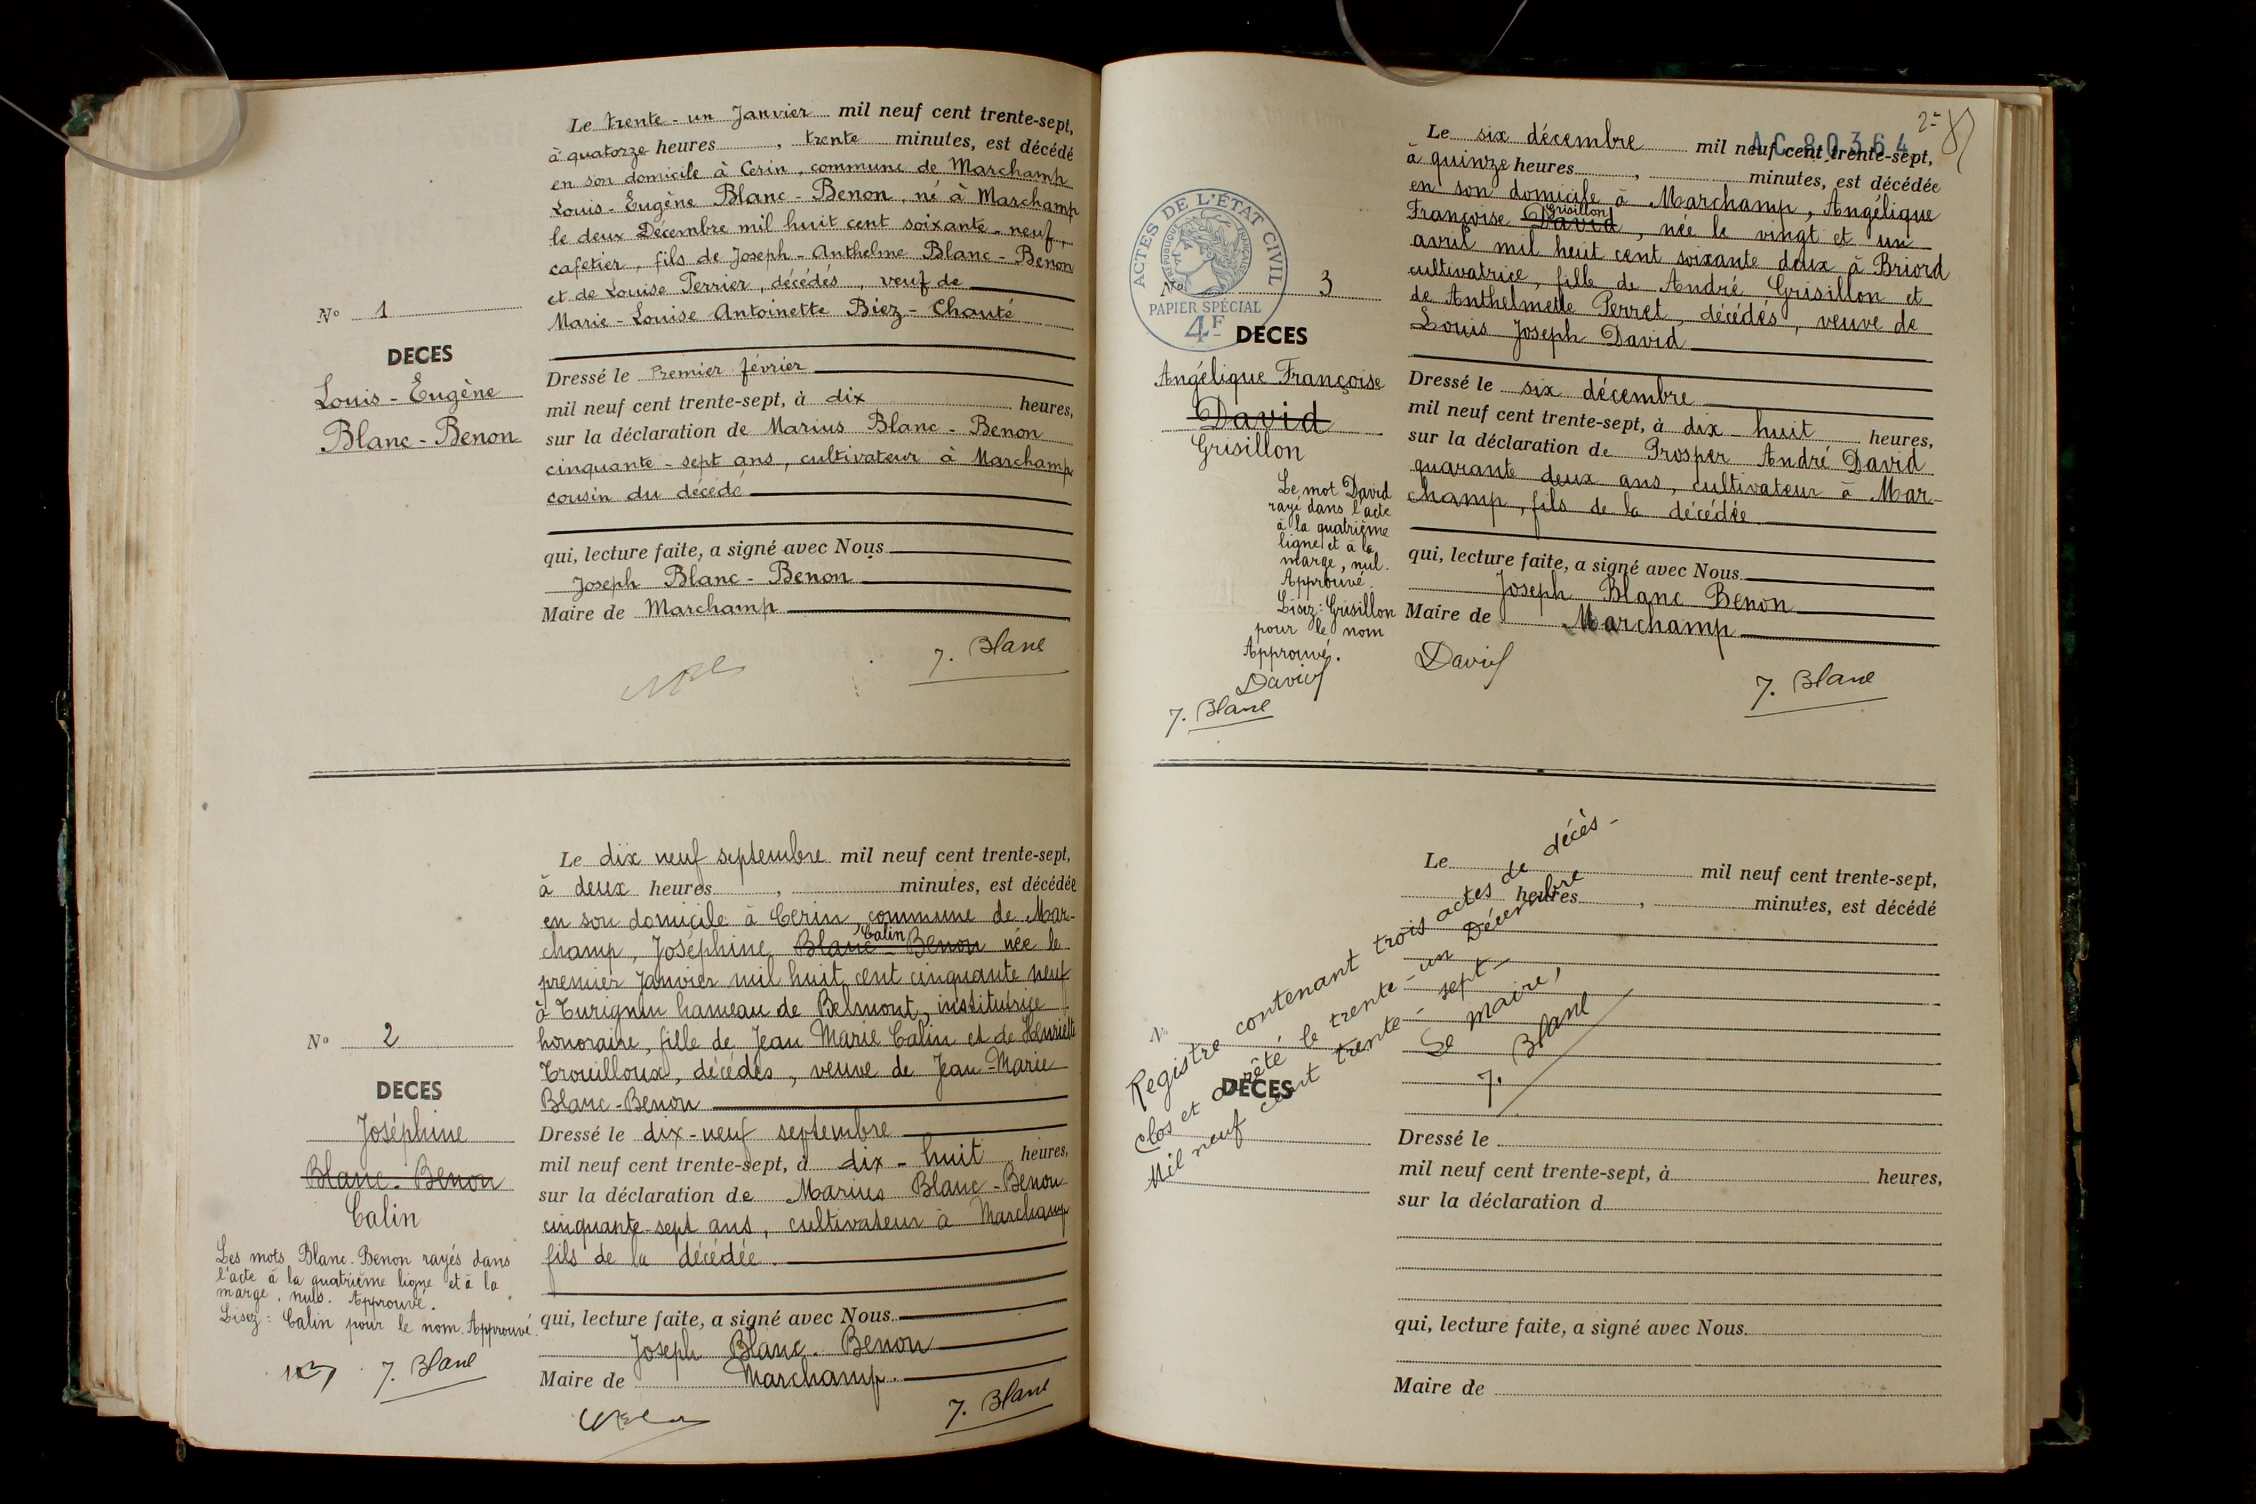 Le trente-un Janvier mil neuf cent trente-sept,
à quatorze heures, trente minutes, est décédé
en son domicile à Cerin, commune de Marchamp
Louis-Eugène Blanc-Benon, né à Marchamp
le deux Décembre mil huit cent soixante-neuf,
cafetier, fils de Joseph-Anthelme Blanc-Benon
et de Louise Perrier, décédés, veuf de
Marie-Louise Antoinette Biez-Chanté
N° 1
DECES
Louis-Eugène
Blanc-Benon
Dressé le Premier février
mil neuf cent trente-sept, à dix heures,
sur la déclaration de Marius Blanc-Benon
cinquante-sept ans, cultivateur à Marchamp
cousin du décédé
qui, lecture faite, a signé avec Nous
Joseph Blanc-Benon
Maire de Marchamp
J. Blanc
Le dix neuf septembre mil neuf cent trente-sept,
à deux heures, minutes, est décédée
en son domicile à Cerin, commune de Mar-
champ, Joséphine Blanc-Benon Calin née le
premier Janvier mil huit cent cinquante neuf
à Turignin hameau de Belmont, institutrice
honoraire, fille de Jean Marie Calin et de Henriette
Trouilloux, décédés, veuve de Jean-Marie
Blanc-Benon
N° 2
DECES
Joséphine
Blanc-Benon
Calin
Les mots Blanc-Benon rayés dans
l'acte à la quatrième ligne et à la
marge, nuls. Approuvé.
Lisez: Calin pour le nom. Approuvé.
J. Blanc
Dressé le dix-neuf septembre
mil neuf cent trente-sept, à dix-huit heures,
sur la déclaration de Marius Blanc-Benon
cinquante-sept ans, cultivateur à Marchamp
fils de la décédée.
qui, lecture faite, a signé avec Nous
Joseph Blanc-Benon
Maire de Marchamp.
J. Blanc
AC 80364
Le six décembre mil neuf cent trente-sept,
à quinze heures, minutes, est décédée
en son domicile à Marchamp, Angélique
Françoise David Grisillon, née le vingt et un
avril mil huit cent soixante deux à Briord
cultivatrice, fille de André Grisillon et
de Anthelmette Perret, décédés, veuve de
Louis Joseph David
ACTES DE L'ÉTAT CIVIL
RÉPUBLIQUE FRANÇAISE
PAPIER SPÉCIAL
4F
N° 3
DECES
Angélique Françoise
David
Grisillon
Le mot David
rayé dans l'acte
à la quatrième
ligne et à la
marge, nul.
Approuvé.
Lisez: Grisillon
pour le nom
Approuvé.
David
J. Blanc
Dressé le six décembre
mil neuf cent trente-sept, à dix-huit heures,
sur la déclaration de Prosper André David
quarante deux ans, cultivateur à Mar-
champ, fils de la décédée
qui, lecture faite, a signé avec Nous
Joseph Blanc Benon
Maire de Marchamp
David
J. Blanc
Le mil neuf cent trente-sept,
heures, minutes, est décédé
N°
DECES
Registre contenant trois actes de décès-
Clos et arrêté le trente-un Décembre
Mil neuf cent trente-sept-
Le Maire,
J. Blanc
Dressé le
mil neuf cent trente-sept, à heures,
sur la déclaration d
qui, lecture faite, a signé avec Nous
Maire de